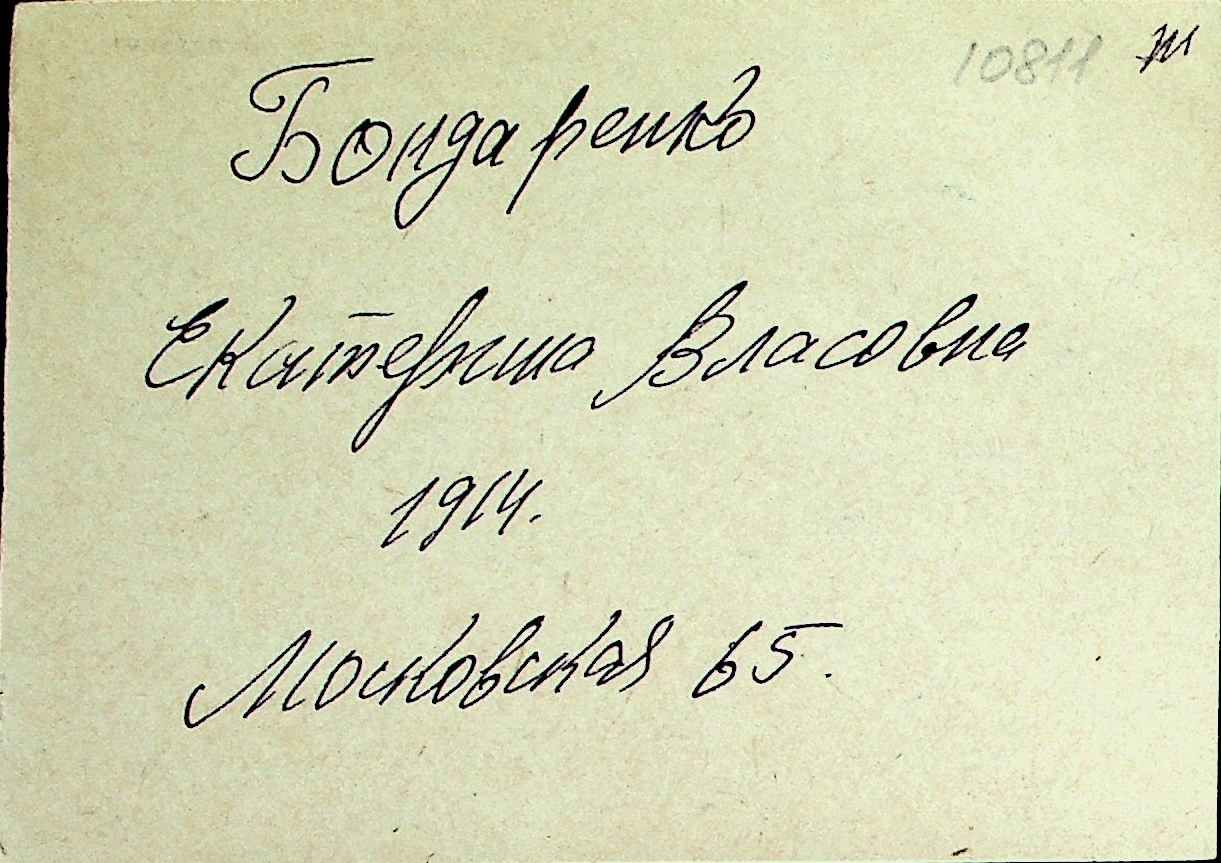 10811
Бондаренко
Екатерина Власовна
1914.
Московская 65.